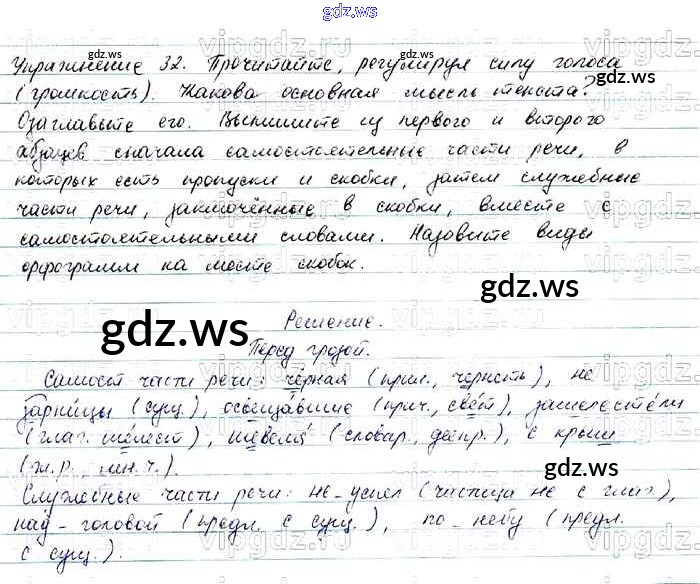 gdz.ws
Упражнение 32. Прочитайте, регулируя силу голоса
(громкость). Какова основная мысль текста?
Озаглавьте его. Выпишите из первого и второго
абзацев сначала самостоятельные части речи, в
которых есть пропуски и скобки, затем служебные
части речи, заключённые в скобки, вместе с
самостоятельными словами. Назовите виды
орфограмм на месте скобок.
Решение.
Перед грозой.
Самост части речи: чёрная (прил., чернить), не
зарницы (сущ.), освещавшие (прич., свет), зашелестели
(глаг. шелест), шевеля (словар., деепр.), с крыш
(ж.р., мн.ч.).
Служебные части речи: не-успел (частица не с глаг.),
над-головой (предл. с сущ.), по-небу (предл.
с сущ.).